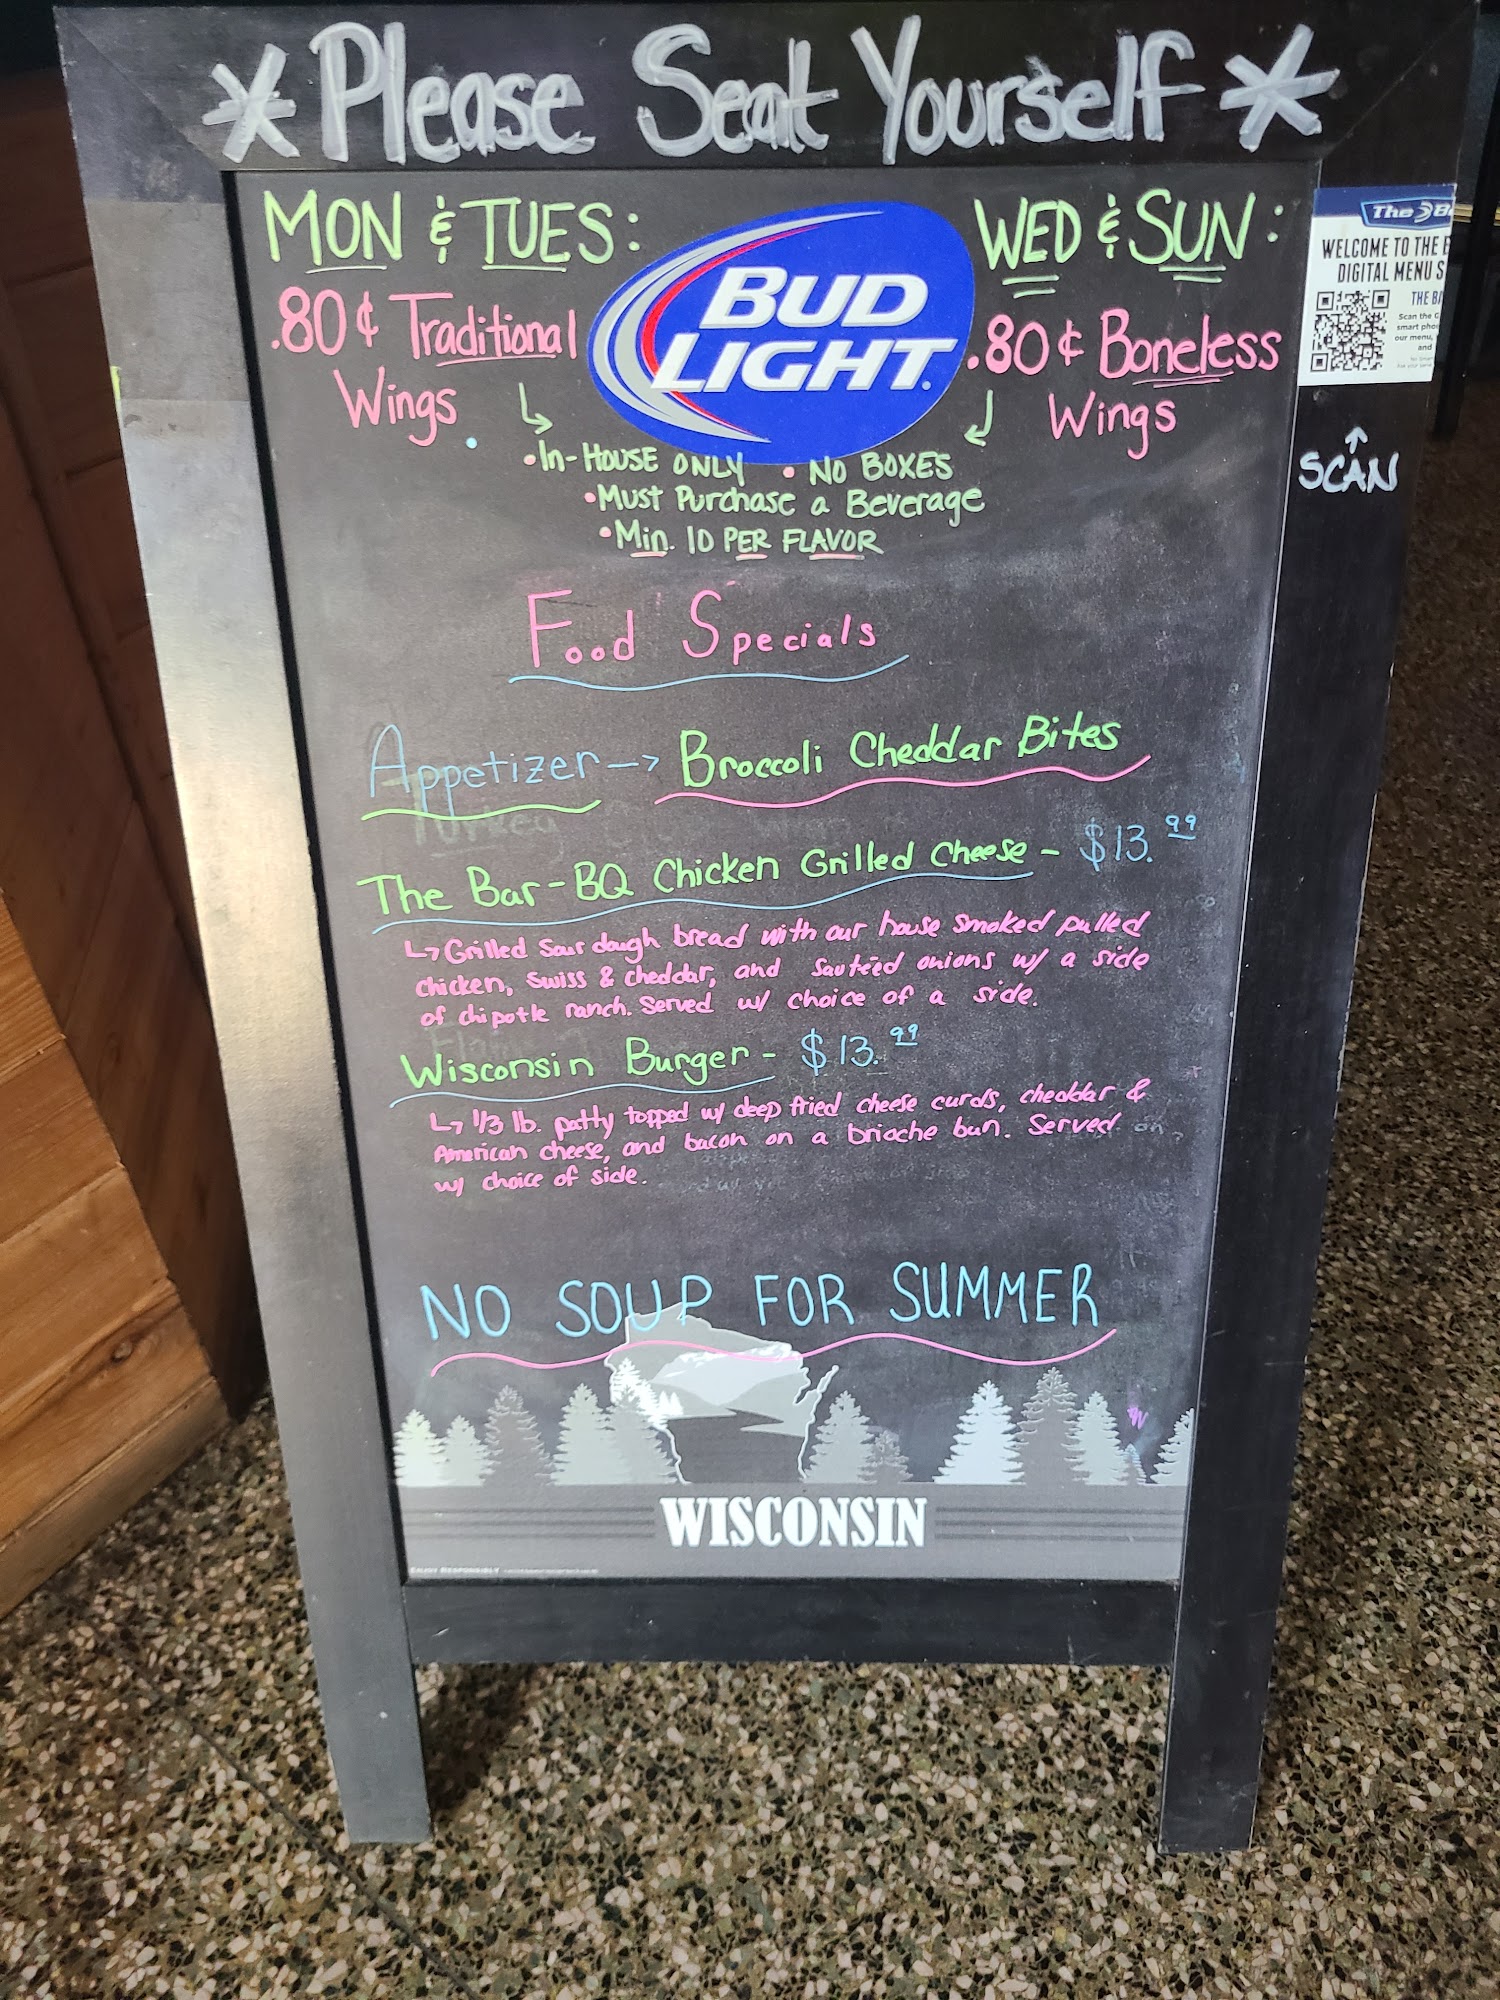 *Please Seat Yourself*
MON & TUES:
.80¢ Traditional
Wings
BUD
LIGHT.
WED & SUN:
.80¢ Boneless
Wings
•In-House ONLY • NO BOXES
•Must Purchase a Beverage
•Min. 10 PER FLAVOR
The
WELCOME TO THE
DIGITAL MENU
Scan the
our menu,
and
SCAN
Food Specials
Appetizer --> Broccoli Cheddar Bites
The Bar-BQ Chicken Grilled Cheese - $13.99
↳ Grilled Sourdough bread with our house smoked pulled
chicken, swiss & cheddar, and sautéed onions w/ a side
of chipotle ranch. Served w/ choice of a side.
Wisconsin Burger - $13.99
↳ 1/3 lb. patty topped w/ deep fried cheese curds, cheddar &
American cheese, and bacon on a brioche bun. Served
w/ choice of side.
NO SOUP FOR SUMMER
WISCONSIN
ENJOY RESPONSIBLY